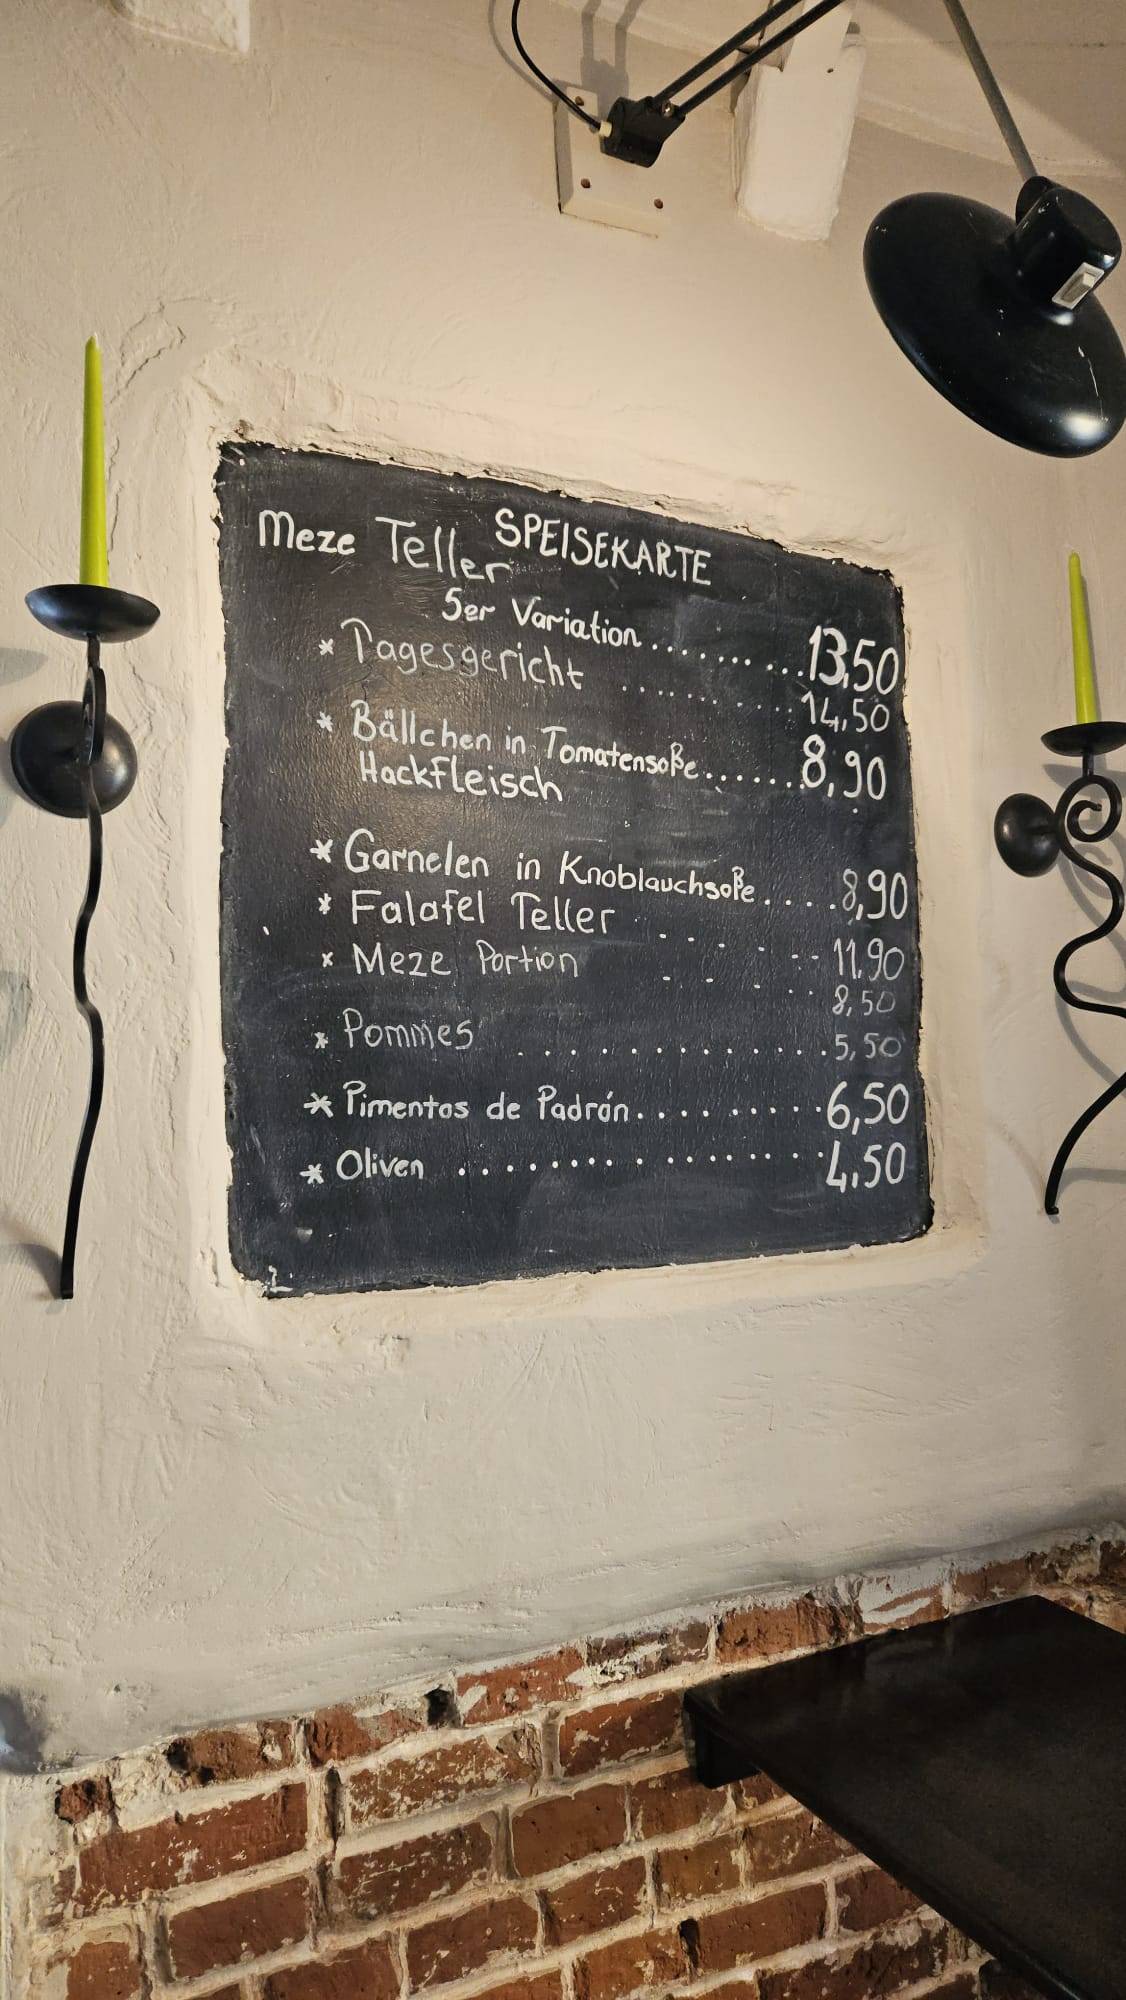 SPEISEKARTE
Meze Teller
5er Variation..........13,50
* Tagesgericht ............14,50
* Bällchen in Tomatensoße......8,90
Hackfleisch
* Garnelen in Knoblauchsoße.....8,90
* Falafel Teller ......11,90
* Meze Portion ......8,50
* Pommes ..............5,50
* Pimentos de Padrón..........6,50
* Oliven ................4,50